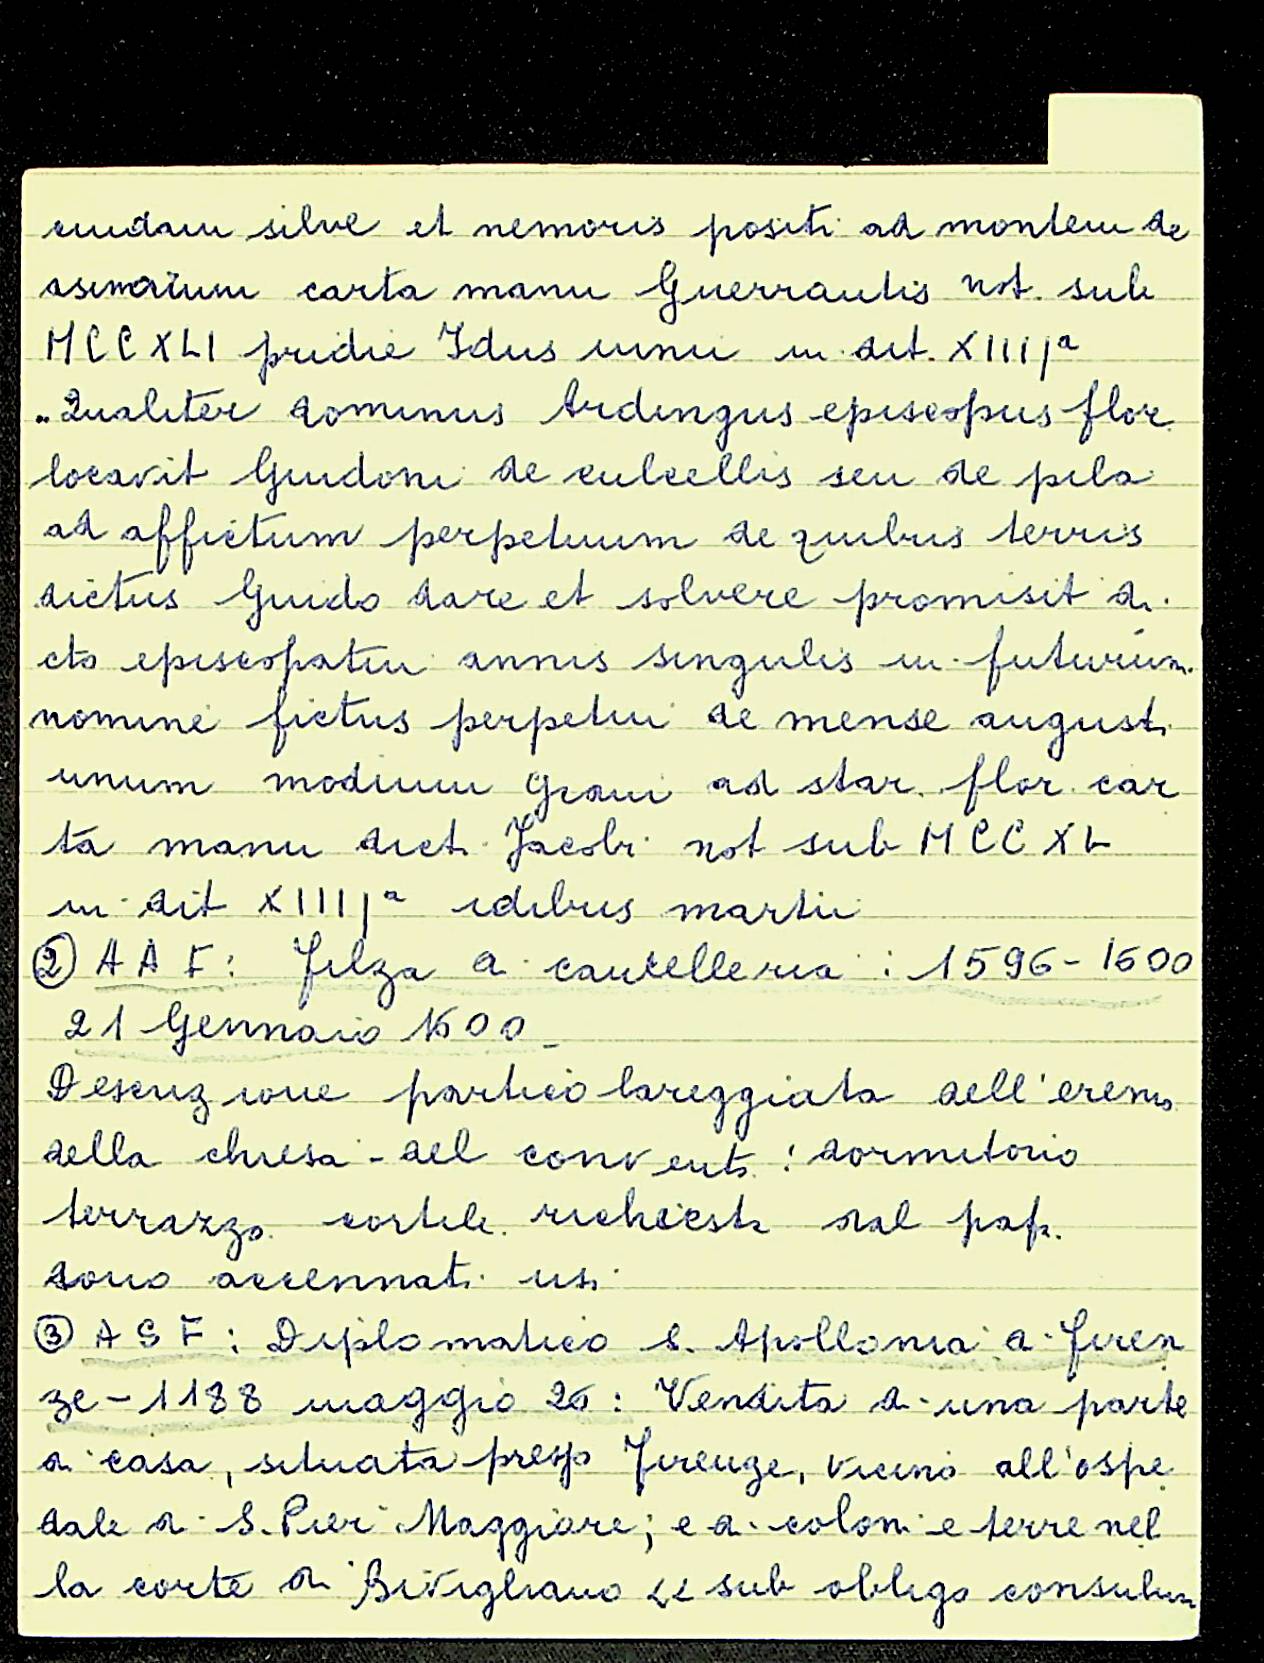 cuidam silve et nemoris positi ad montem de
asinarium carta manu Guerrantis not. sub
MCCXLI pridie Idus iunii in dit. XIIIJª
"Qualiter dominus Ardingus episcopus flor.
locavit Guidoni de culcellis seu de pila
ad affictum perpetuum de quibus terris
dictus Guido dare et solvere promisit di
cto episcopatui annis singulis in futurum
nomine fictus perpetui de mense augusti
unum modium grani ad star. flor. car
ta manu dicti Jacobi not sub MCCXL
in dit XIIIJª idibus martii
② AAF: Filza di cancelleria: 1596-1600
21 Gennaio 1600
Descrizione particolareggiata dell'eremo
della chiesa - del convento: dormitorio
terrazzo cortile. richieste dal papa.
sono accennati usi
③ ASF: Diplomatico S. Apollonia di Firen
ze - 1188 maggio 26: Vendita di una parte
di casa, situata presso Firenze, vicino all'ospe
dale di S. Pier Maggiore; e di coloni e terre nel
la corte di Bivigliano << sub obligo consulum